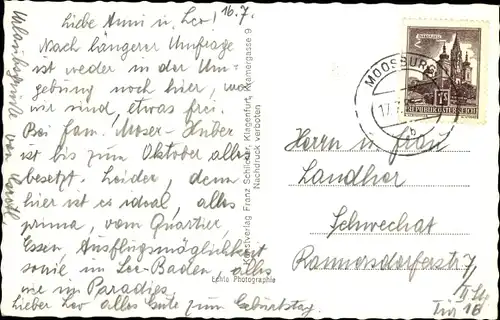 16.7.
Liebe Anni u. Leo!
Nach längerer Umfrage
ist weder in der Um-
gebung noch hier, wo
wir sind, etwas frei.
Bei Fam. Moser-Huber
ist bis zum Oktober alles
besetzt. Leider, denn
hier ist es ideal, alles
prima, vom Quartier,
Essen, Ausflugsmöglichkeit
sowie im See-Baden, alles
wie im Paradies.
Lieber Leo alles Gute zum Geburtstag.
Kunstverlag Franz Schilcher, Klagenfurt, Kramergasse 9
Nachdruck verboten
Echte Photographie
MOOSBURG
17.7.
b
REPUBLIK ÖSTERREICH
Herrn u. Frau
Landhor
Schwechat
Rannersdorferstr. 7/